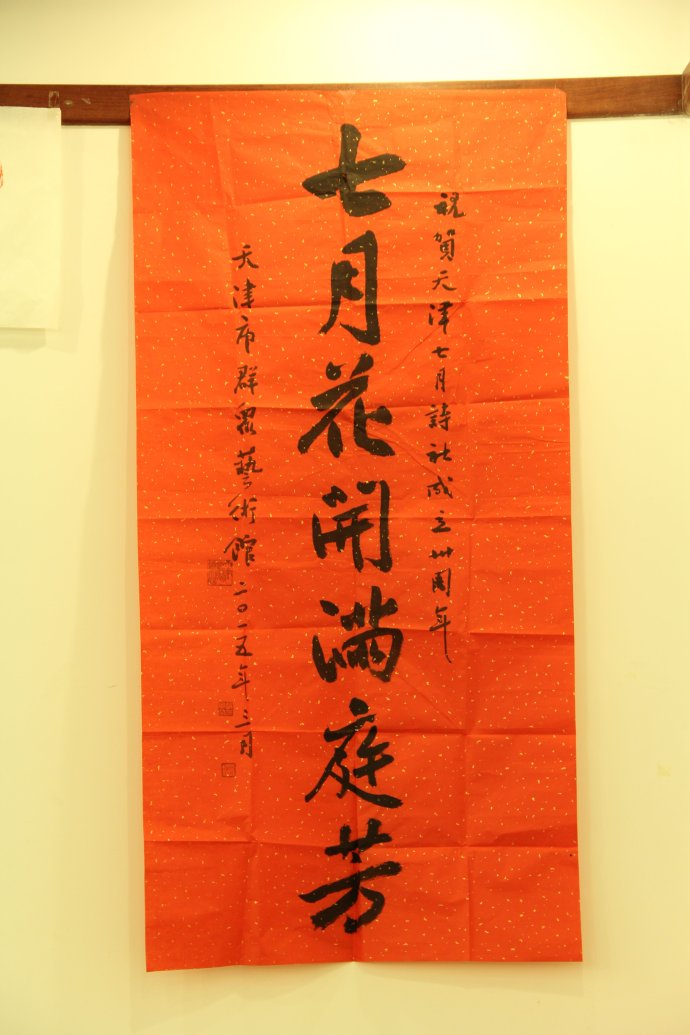 祝賀天津七月詩社成立卅周年
七月花開滿庭芳
天津市群眾藝術館二〇一五年三月